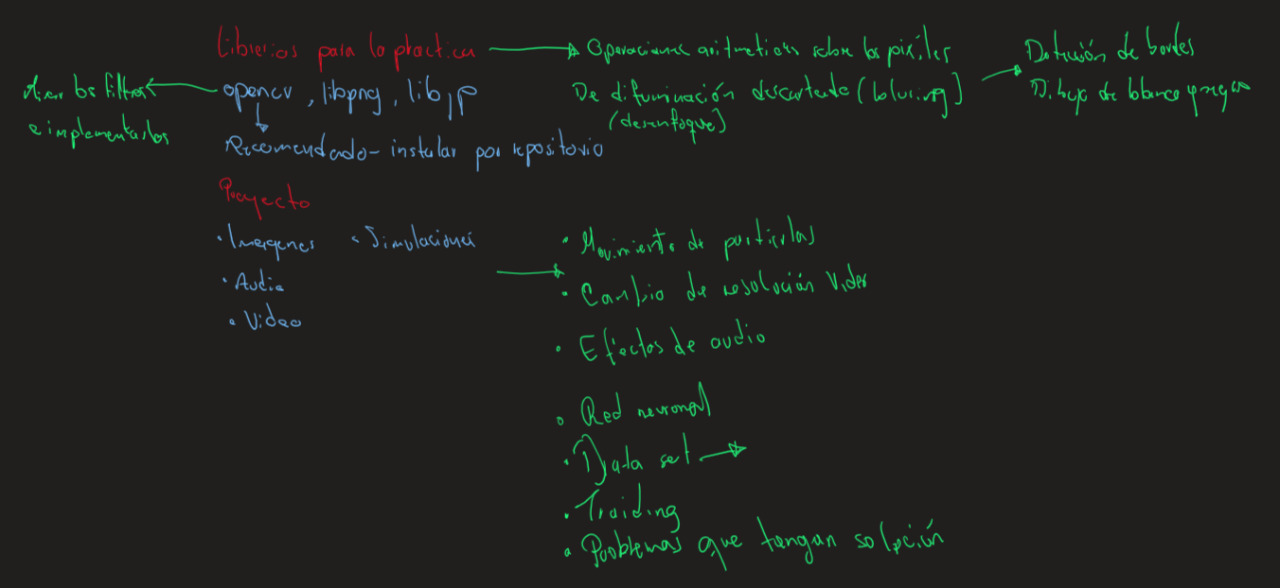 Librerias para la practica
Operaciones aritmeticas sobre los pixéles
De difuminación descartando (
(desenfoque)
Detección de bordes
Dibujo de blanco y negro
los filtros
e implementarlos
opencv, libpng, libjp
Recomendado - instalar por repositorio
Proyecto
• Imagenes • Simulaciones
• Audio
• Video
• Movimiento de particulas
• Cambio de resolución Video
• Efectos de audio
• Red neuronal
• Data set
• Traiding
• Problemas que tengan solución